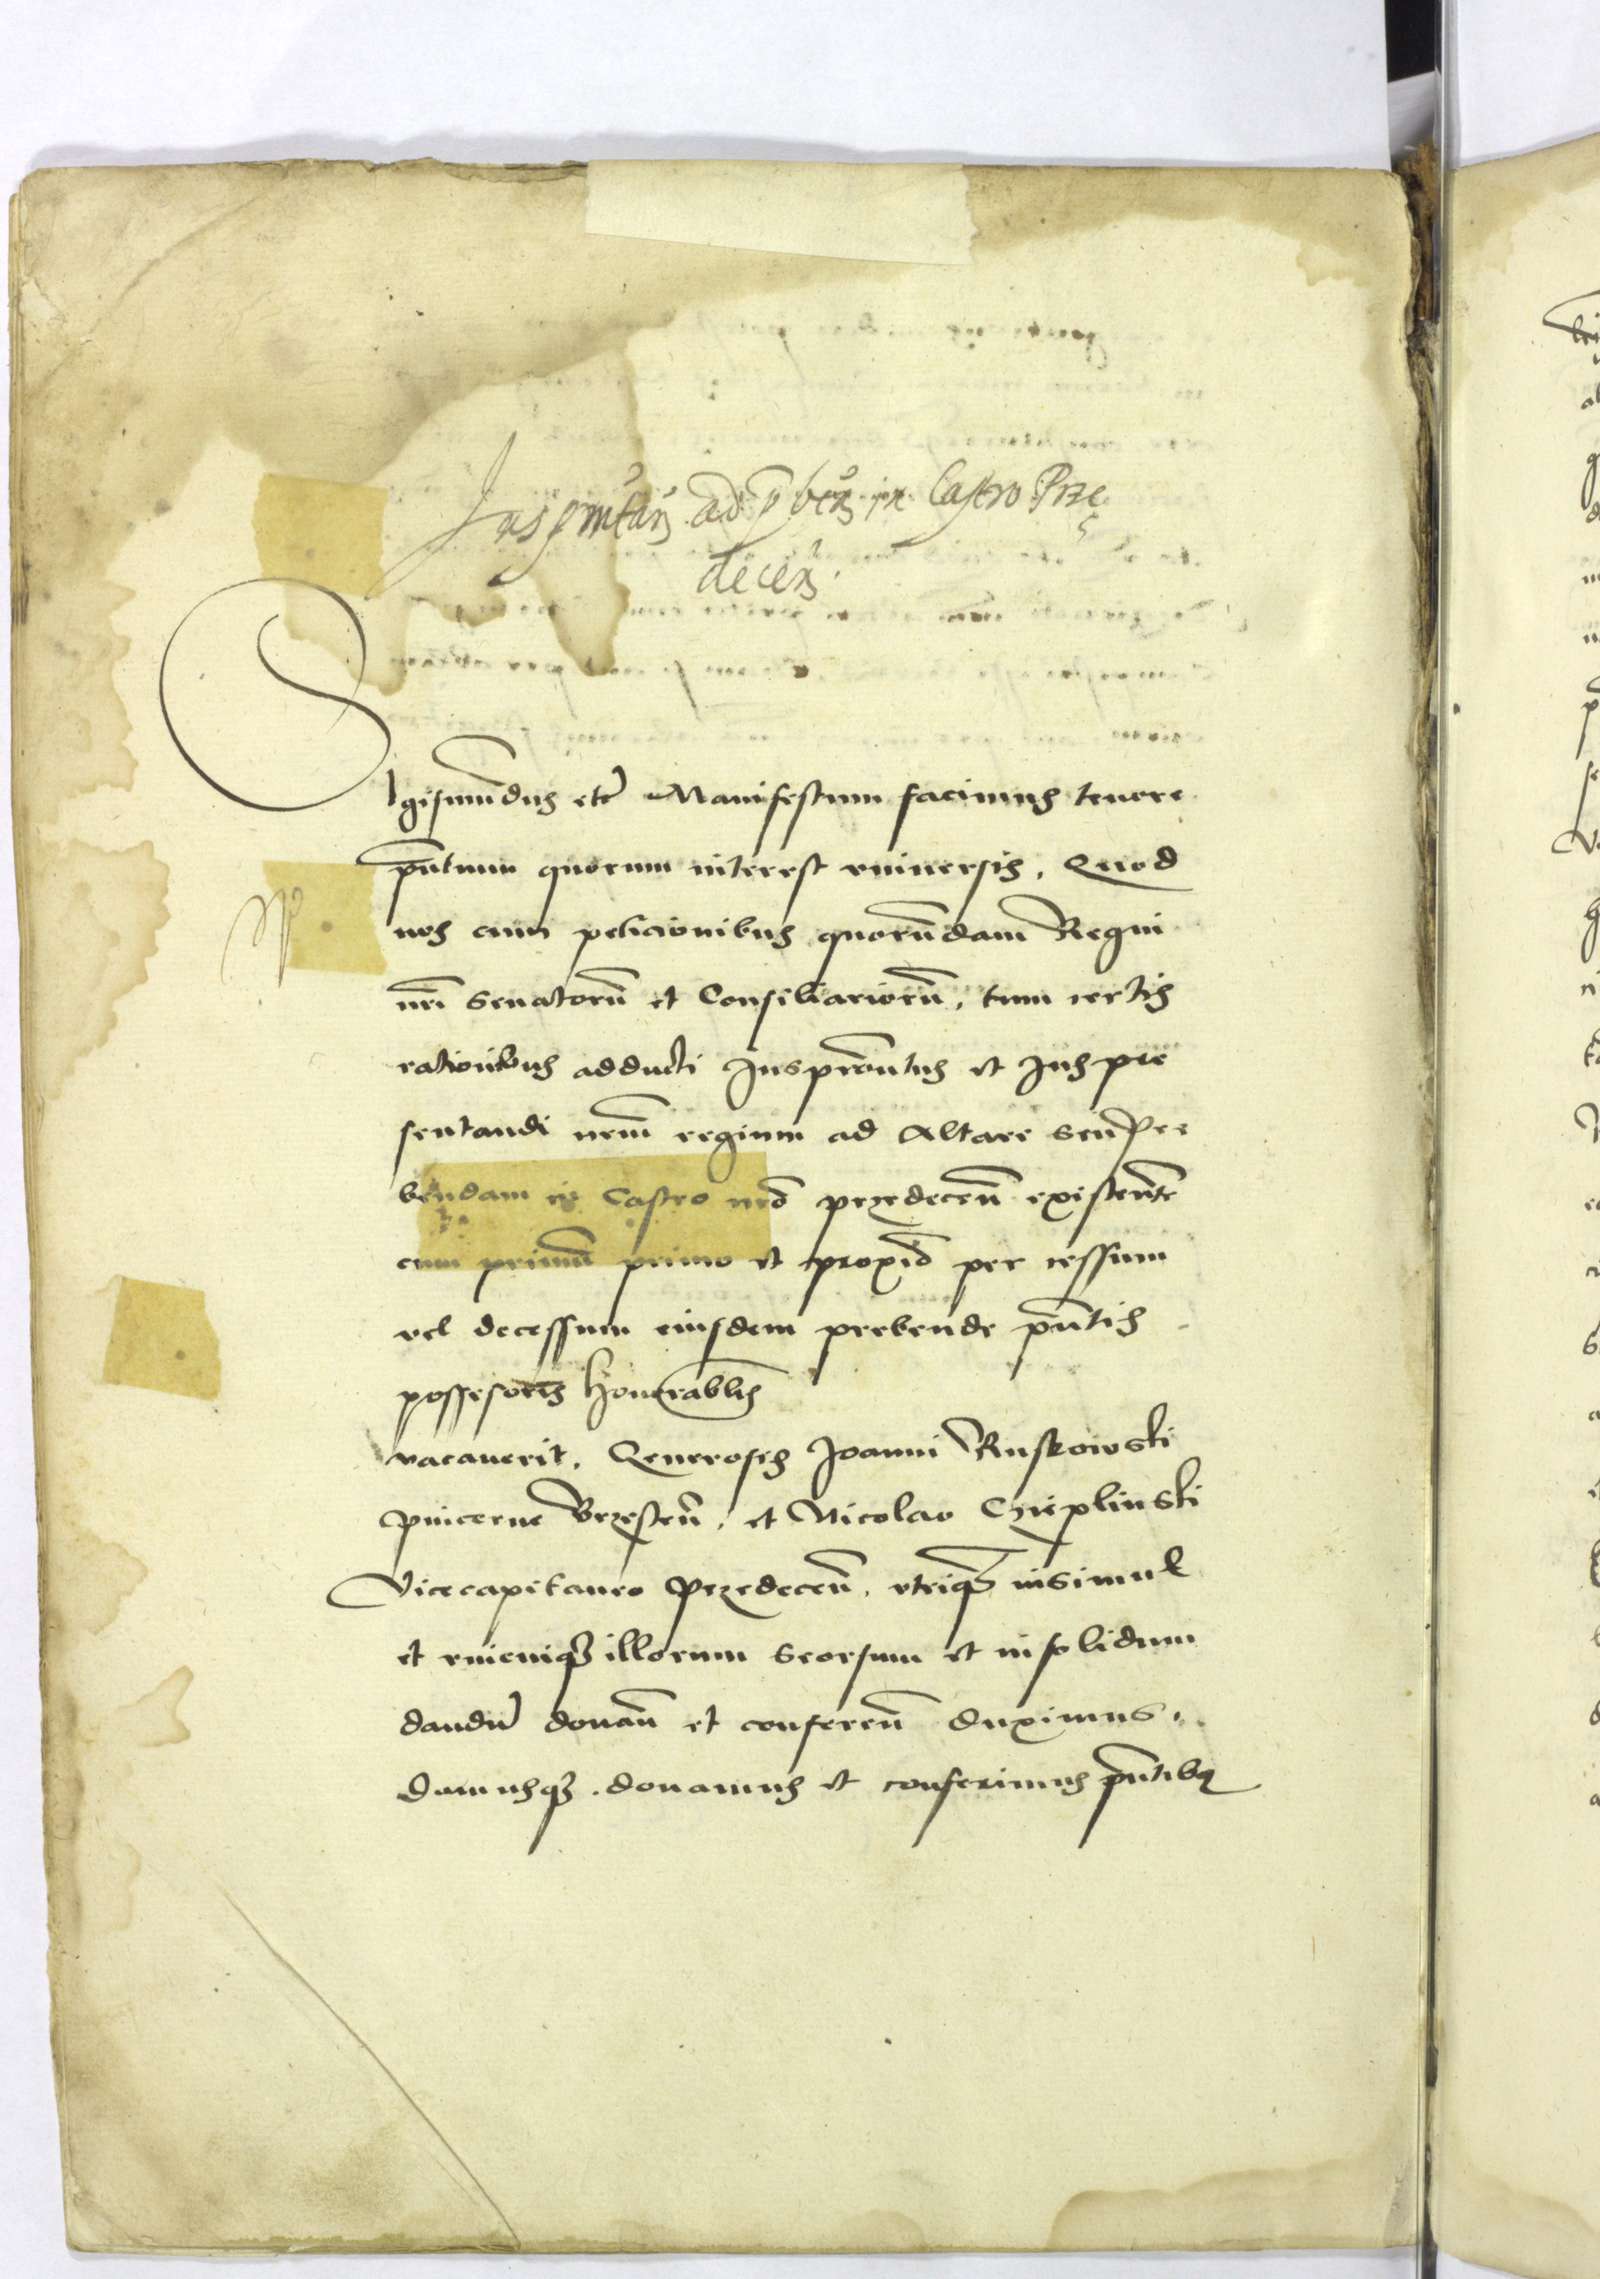 Jus pntan ad pben in Castro Prze
decen
Sigismundus etc Manifestum facimus tenore
pntium quorum interest vniuersis. Quod
nos cum peticionibus quorundam Regni
nri Senatoru et Consiliarioru, tum certis
rationibus adducti Juspronatus et Jus pre
sentandi nrm regium ad Altare seu Pre
bendam in Castro nro przedecen existente
cum primu primo et proxio per cessum
vel decessum eiusdem prebende pntis
possesoris honorablis
vacauerit. Generosis Joanni Ruskowski
pincerne Brzesten, et Nicolao Czieplinski
Vicecapitaneo Przedecen, vtriq insimul
et vnicuiq illorum seorsum et insolidum
dandu donan et conferen duximus,
damusq. donamus et conferimus pntibq